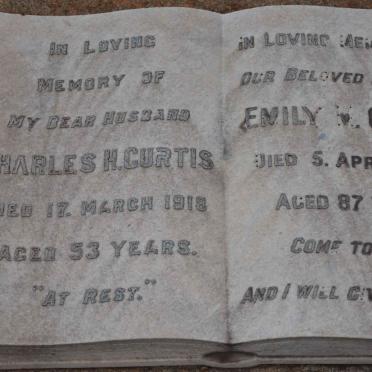 IN LOVING
MEMORY OF
MY DEAR HUSBAND
CHARLES H. CURTIS
DIED 17. MARCH 1918
AGED 53 YEARS.
"AT REST."
IN LOVING MEM
OUR BELOVED
EMILY
DIED 5. APR
AGED 87
COME TO
AND I WILL GIV